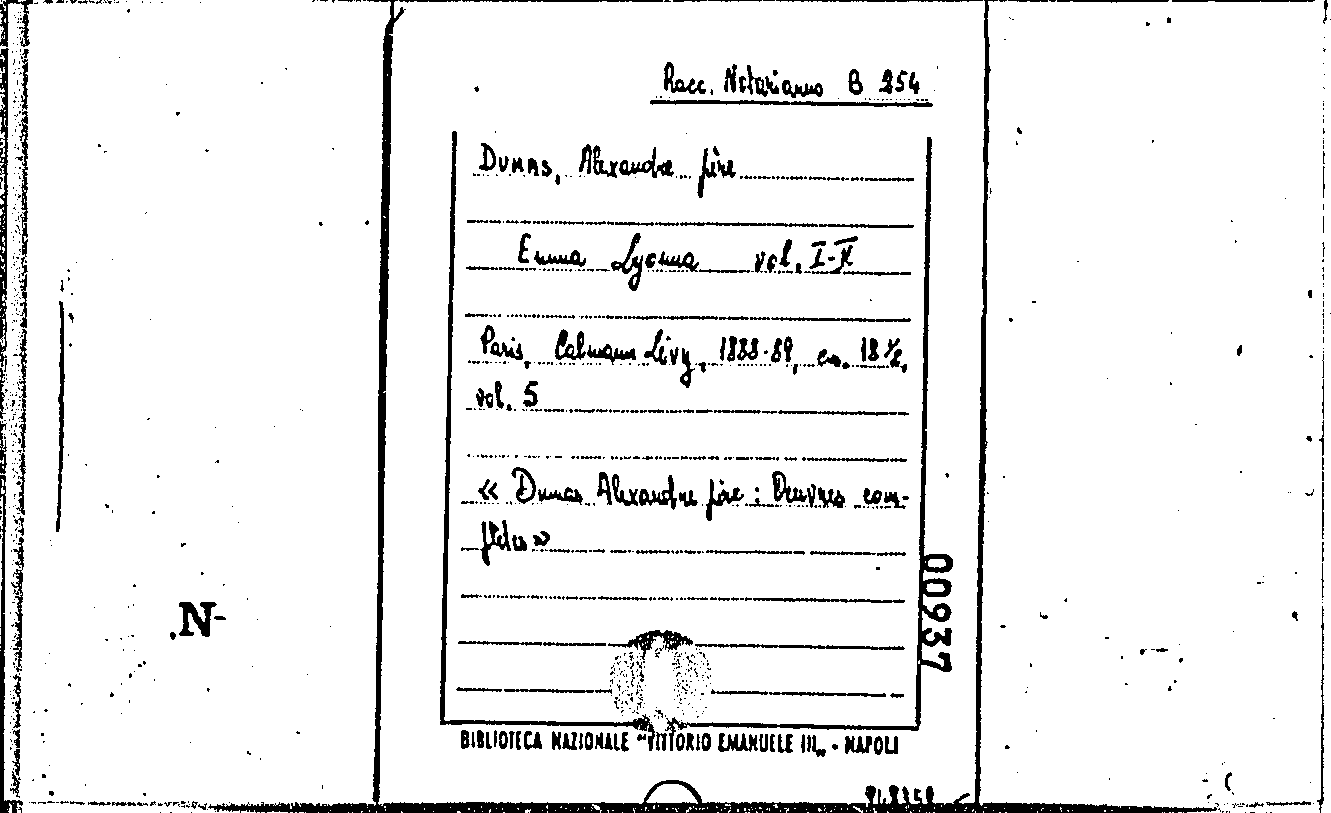 Racc. Notarianno B 254
DUMAS, Alexandre père
Emma Lyonna vol. I-V
Paris, Calmann Lévy, 1888-89, cm. 18½,
vol. 5
« Dumas Alexandre père : Oeuvres com-
plètes »
00937
.N-
BIBLIOTECA NAZIONALE "VITTORIO EMANUELE III„ - NAPOLI